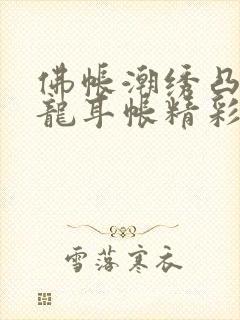 佛帐潮绣凸
龍耳帐精彩
雪落寒衣